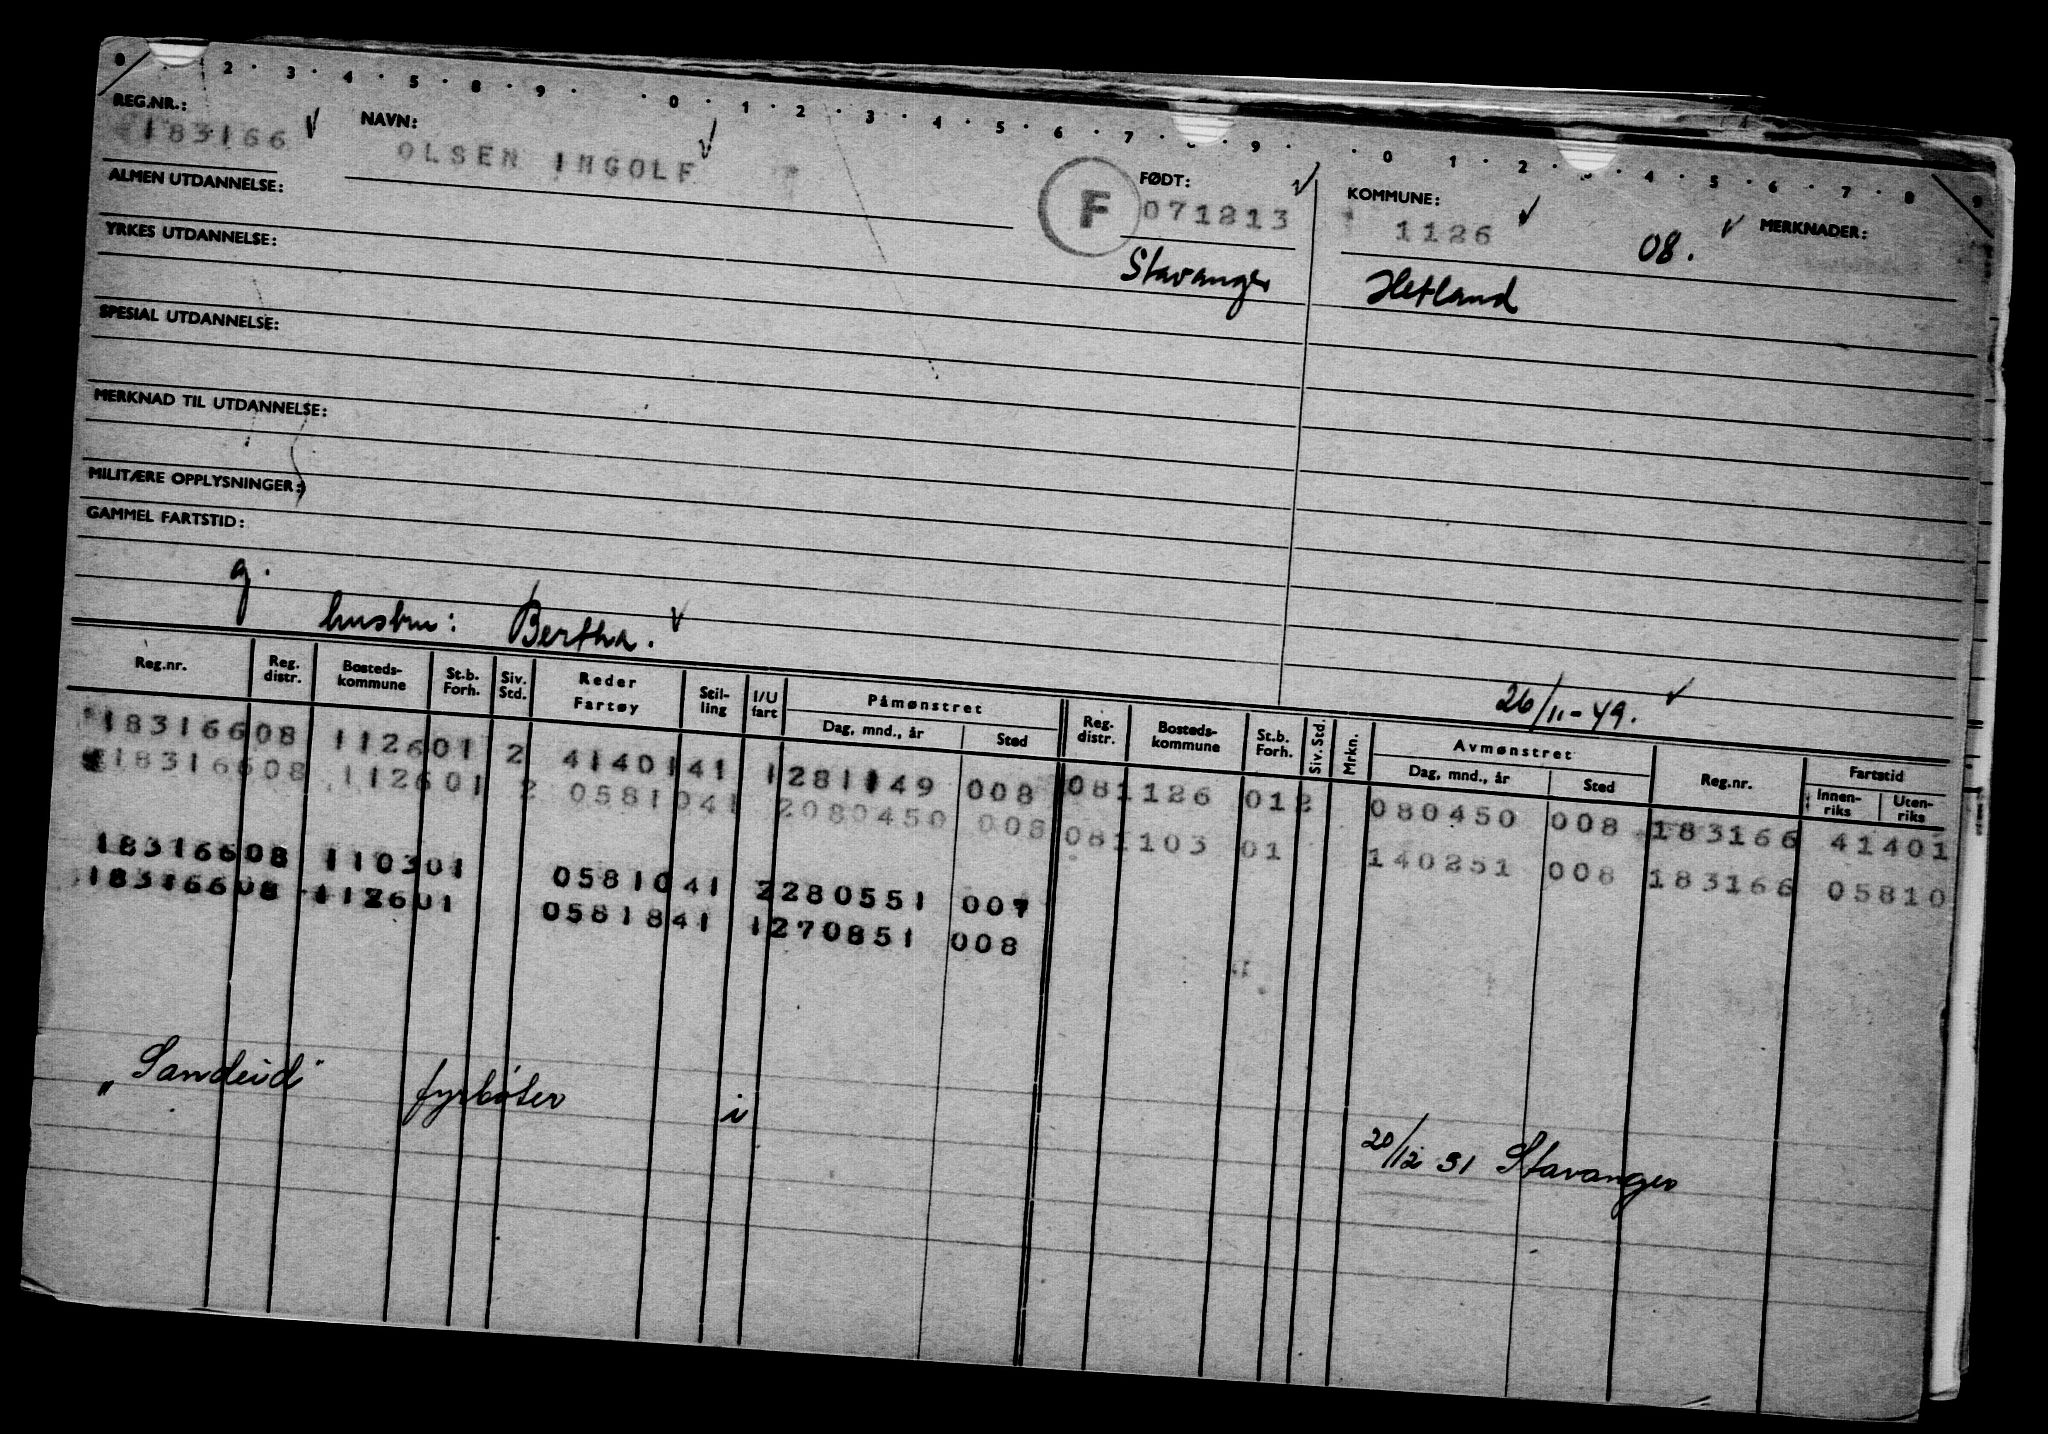 0 · 2 · 3 · 4 · 5 · 8 · 9 · · 0 · 1 · 2 · 3 · 4 · 5 · 6 · 7 · 9 · · 0 1 · 2 · 4 · 5 · 6 · 7 · 8 9
REG.NR.: 183166
NAVN: OLSEN INGOLF
F
FØDT: 071213
Stavanger
KOMMUNE: 1126
08.
MERKNADER:
Hetland
ALMEN UTDANNELSE:
YRKES UTDANNELSE:
SPESIAL UTDANNELSE:
MERKNAD TIL UTDANNELSE:
MILITÆRE OPPLYSNINGER:
GAMMEL FARTSTID:
g.
hustru: Bertha.
26/11-49.
Reg.nr. Reg. distr. Bosteds-kommune St.b. Forh. Siv. Std. Reder Fartøy Stil-ling I/U fart Påmønstret Dag, mnd., år Sted Reg. distr. Bosteds-kommune St.b. Forh. Siv. Std. Mrkn. Avmønstret Dag, mnd., år Sted Reg.nr. Fartstid Innen-riks Uten-riks
18316608 112601 2 4140141 1281149 008 081126 012 080450 008 183166 41401
18316608 112601 2 0581041 2080450 008 081103 01 140251 008 183166 05810
18316608 110301 0581041 2280551 007
18316608 112601 0581841 1270851 008
"Sandeid" fyrbøter i 20/12 51 Stavanger